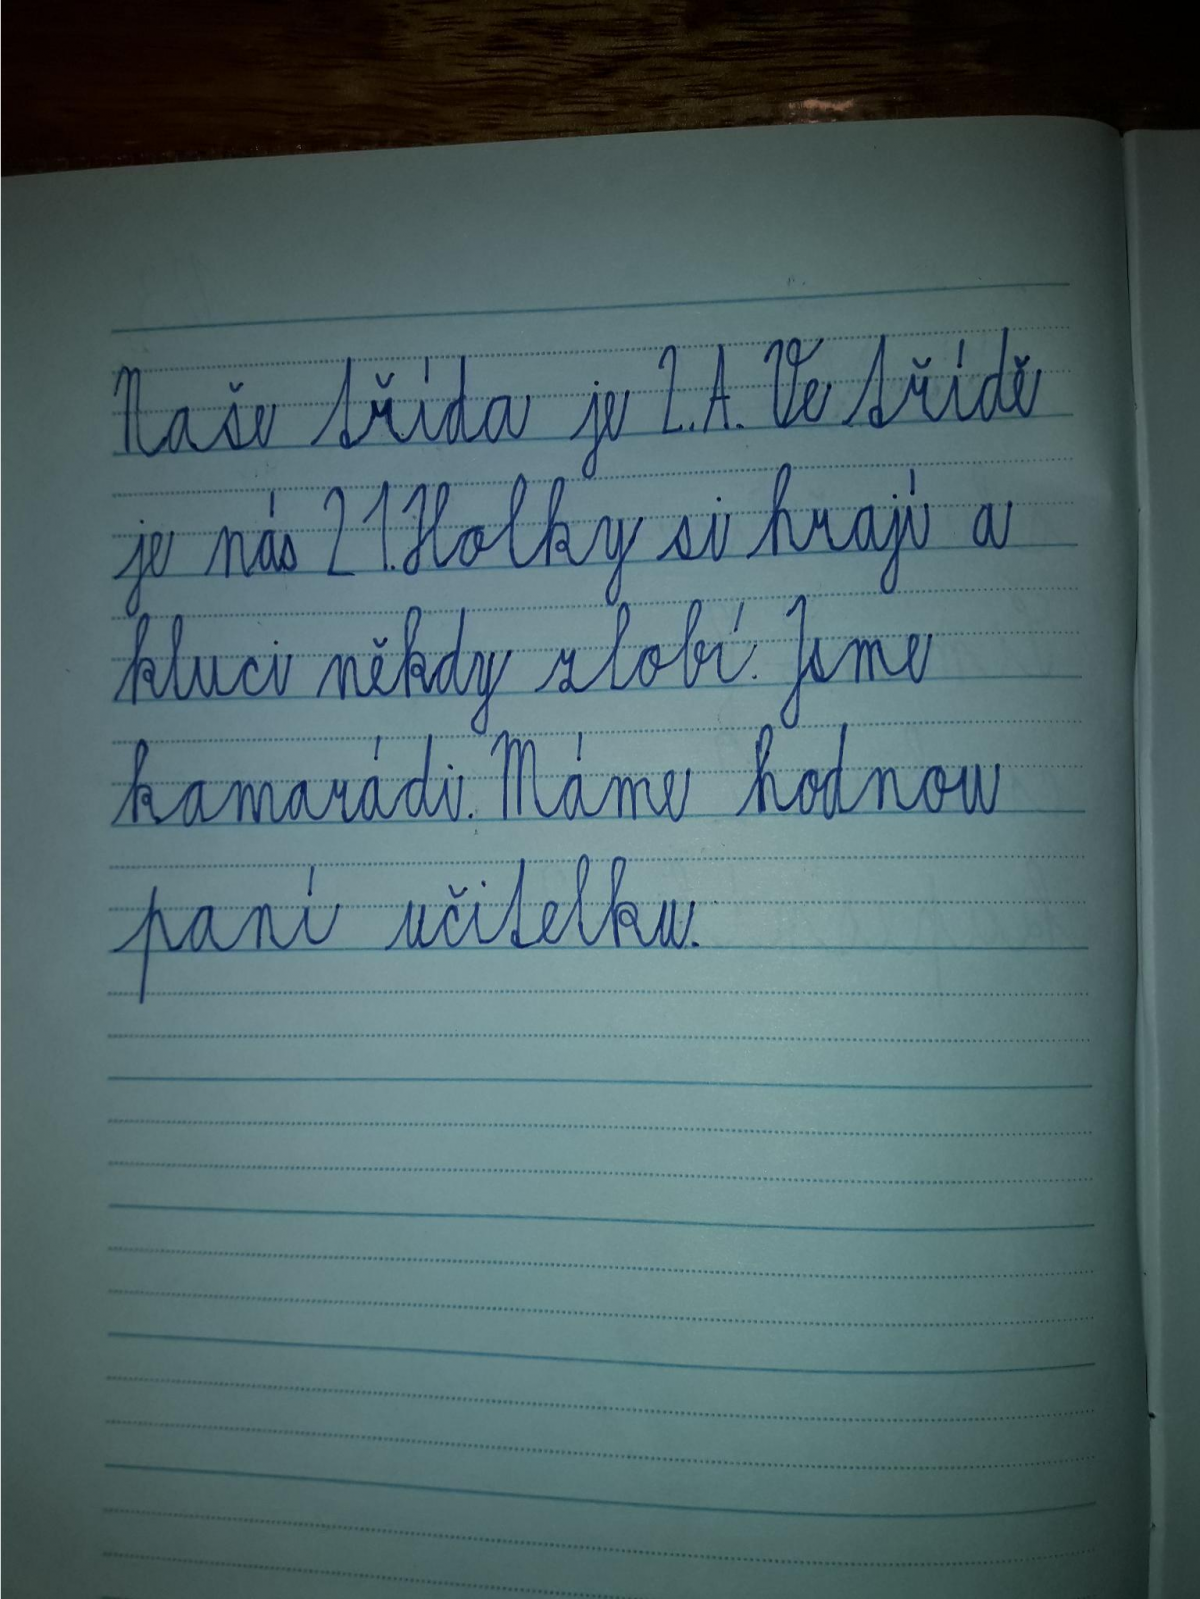 Naše třída je 2.A. Ve třídě
je nás 21. Holky si hrají a
kluci někdy zlobí. Jsme
kamarádi. Máme hodnou
paní učitelku.